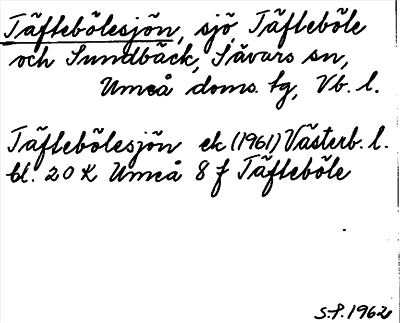 Täftebölesjön, sjö, Täfteböle
och Sundbäck, Sävars sn,
Umeå doms. tg, Vb. l.
Täftebölesjön ek (1961) Västerb. l.
bl. 20 K Umeå 8 f Täfteböle
S.F. 1962